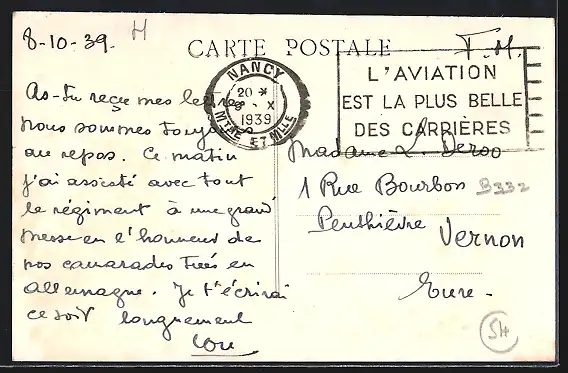 8-10-39. H
CARTE POSTALE
F.M.
NANCY
20 *
8 - X
1939
MTHE ET MLLE
L'AVIATION
EST LA PLUS BELLE
DES CARRIÈRES
As-tu reçu mes lettres
nous sommes toujours
au repos. Ce matin
j'ai assisté avec tout
le régiment à une grand
messe en l'honneur de
nos camarades tués en
Allemagne. Je t'écrirai
ce soir longuement
Lou
Madame L. Deroo
1 Rue Bourbon
Penthièvre
Vernon
Eure.
B332
54